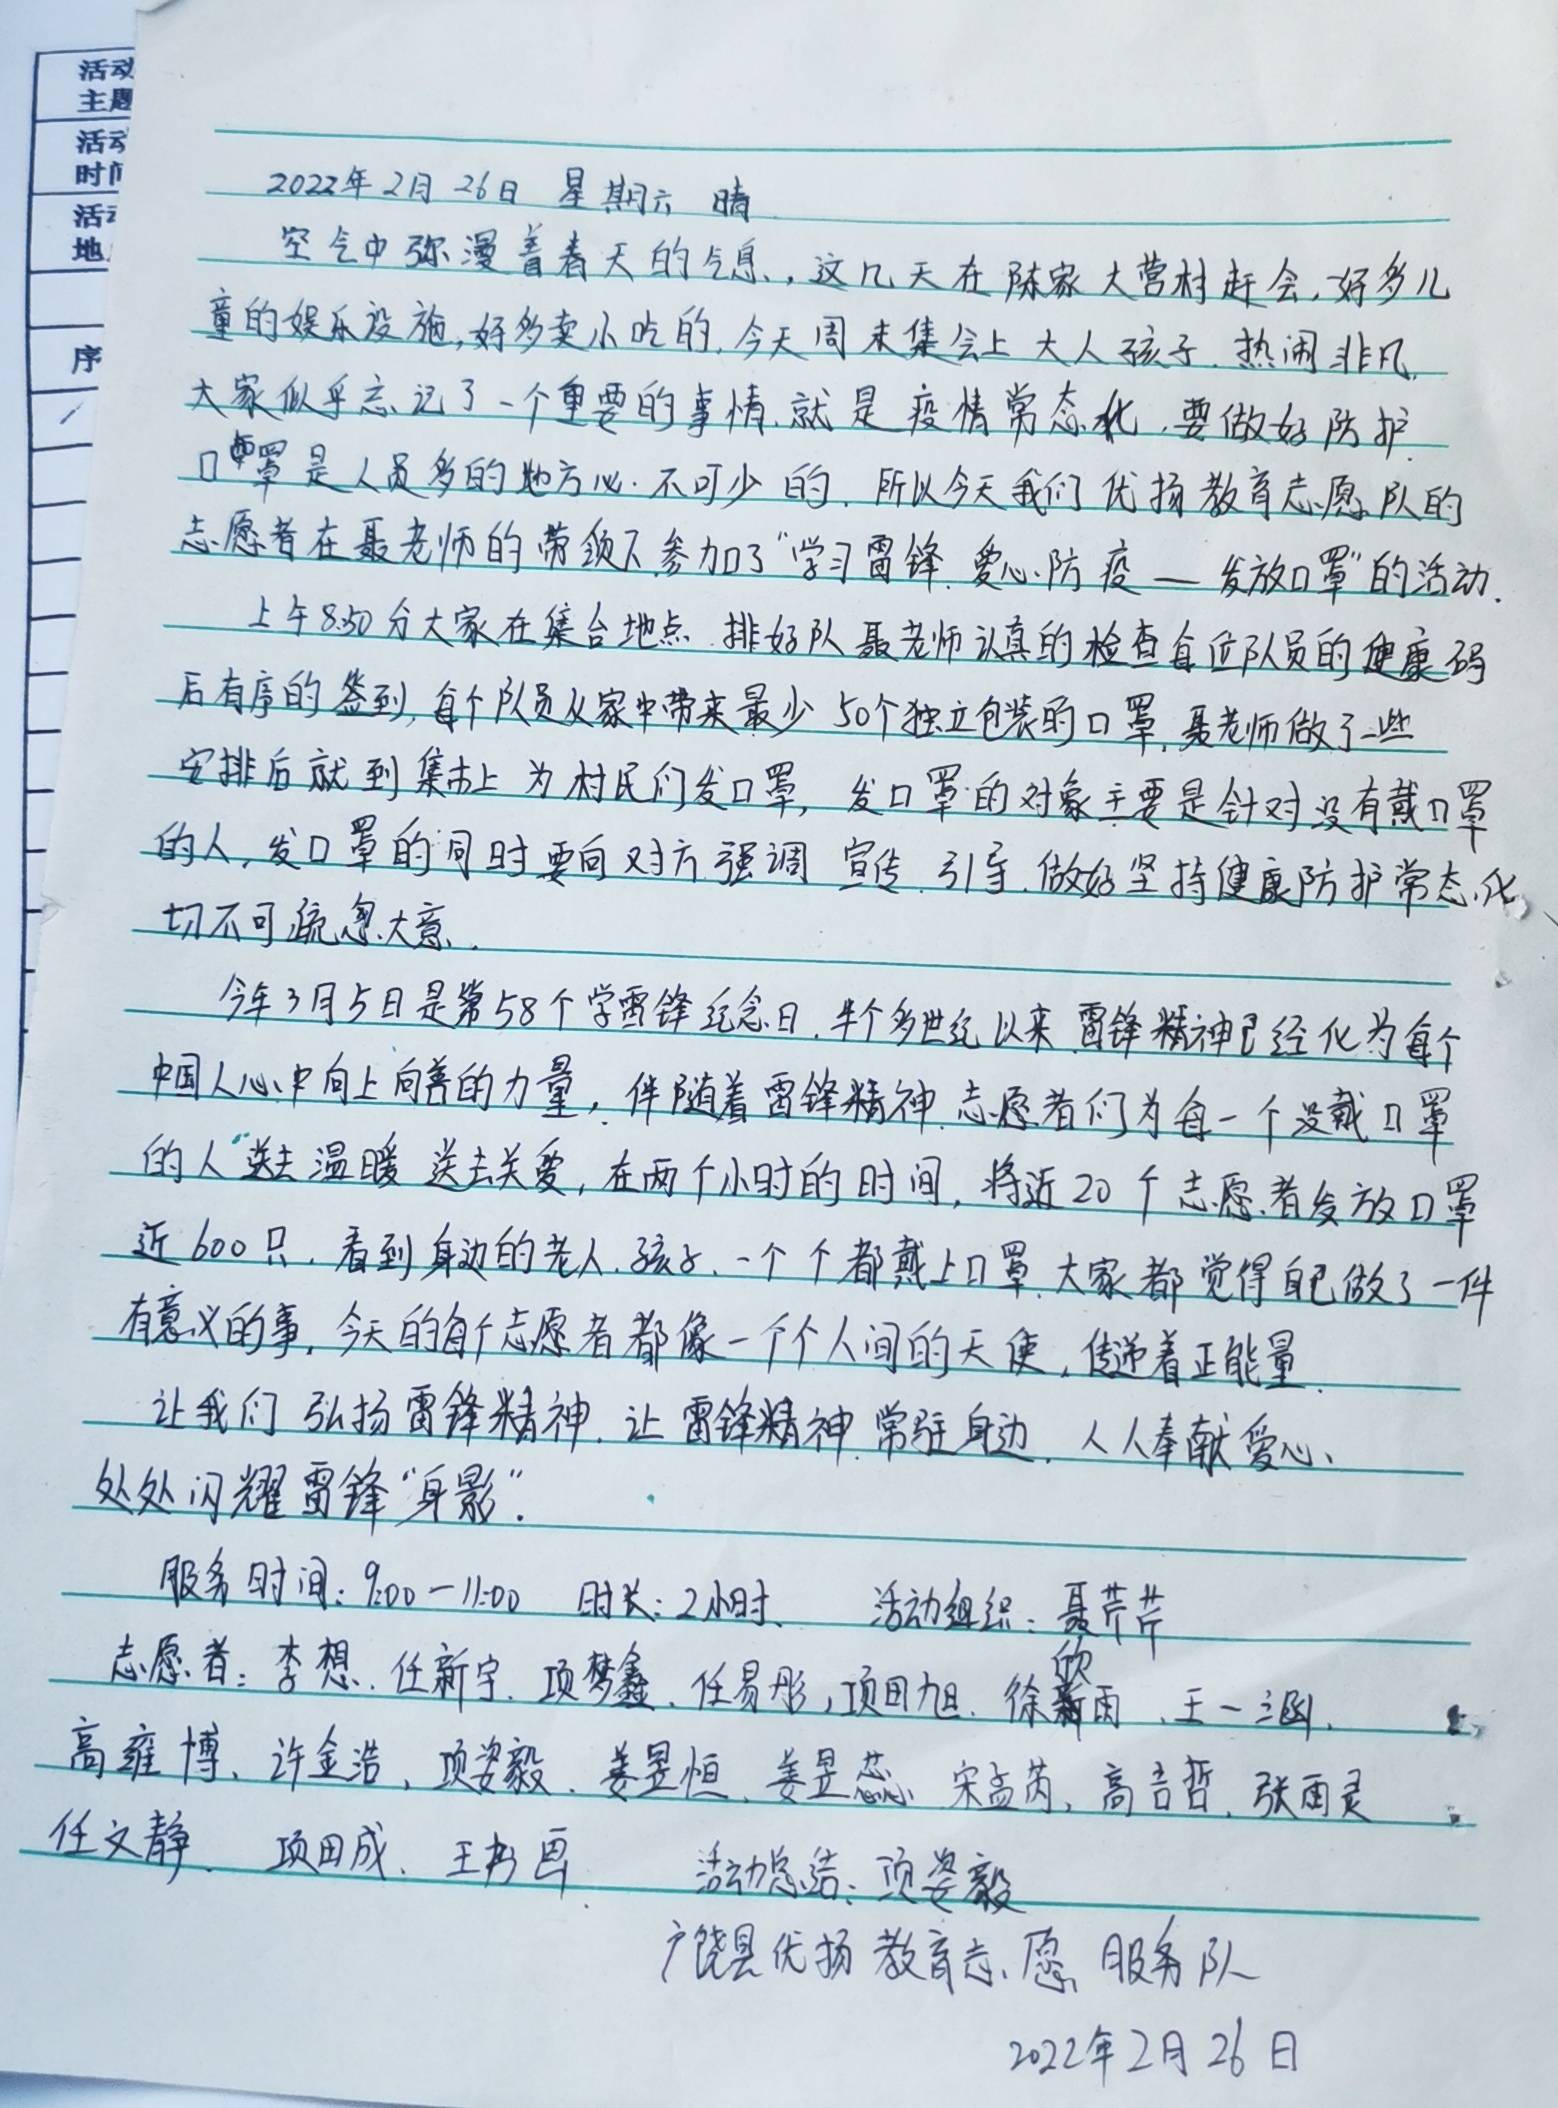 活动
主题
活动
时间
活动
地
序
2022年2月26日 星期六 晴
空气中弥漫着春天的气息,这几天在陈家大营村赶会,好多儿
童的娱乐设施,好多卖小吃的,今天周末集会上大人孩子,热闹非凡,
大家似乎忘记了一个重要的事情,就是疫情常态化,要做好防护,
口罩是人员多的地方必不可少的,所以今天我们优扬教育志愿队的
志愿者在聂老师的带领下,参加了"学习雷锋,爱心防疫—发放口罩"的活动.
上午8:50分大家在集合地点,排好队聂老师认真的检查每位队员的健康码
后有序的签到,每个队员从家中带来最少50个独立包装的口罩,聂老师做了一些
安排后就到集市上为村民们发口罩,发口罩的对象主要是针对没有戴口罩
的人,发口罩的同时要向对方强调 宣传、引导,做好坚持健康防护常态化
切不可疏忽大意.
今年3月5日是第58个学雷锋纪念日,半个多世纪以来 雷锋精神已经化为每个
中国人心中向上向善的力量,伴随着雷锋精神,志愿者们为每一个没戴口罩
的人送去温暖 送去关爱,在两个小时的时间,将近20个志愿者发放口罩
近600只,看到身边的老人、孩子、一个个都戴上口罩,大家都觉得自己做了一件
有意义的事,今天的每个志愿者都像一个个人间的天使,传递着正能量.
让我们弘扬雷锋精神,让雷锋精神常驻身边,人人奉献爱心、
处处闪耀雷锋"身影".
服务时间:9:00—11:00 时长:2小时、 活动组织:聂芹芹
志愿者:李想、任新宇、项梦鑫、任易彤,项田旭、徐欣雨、王一涵、
高雍博、许金浩、项姿毅、姜昱恒、姜昱蕊、宋孟芮,高吉哲、张雨灵
任文静、项田成、王书画 活动总结:项姿毅
广饶县优扬教育志愿服务队
2022年2月26日